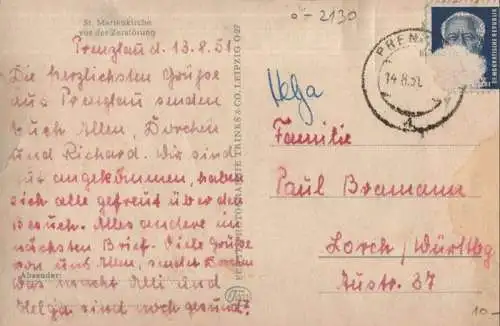 St. Marienkirche
vor der Zerstörung
ö-2130
Prenzlau d. 13.8.51
Die herzlichsten Grüße
aus Prenzlau senden
Euch Allen, Dorchen
und Richard. Wir sind
gut angekommen, haben
sich alle gefreut über den
Besuch. Alles andere im
nächsten Brief. Viele Grüße
von uns Allen,
Absender:
Was macht Alli und
Helga sind noch gesund?
TRINKS & CO., LEIPZIG O 27
Helga
PREN
14.8.51
DEUTSCHE DEMOKRATISCHE REPUBLIK
Familie
Paul Bramann
Lorch/Württbg
Austr. 37
10-